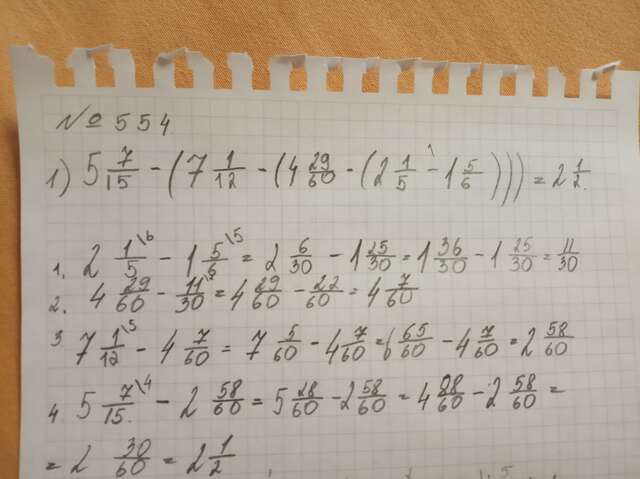 № 554
1) 5 7/15 - (7 1/12 - (4 29/60 - (2 1/5 - 1 5/6))) = 2 1/2.
1. 2 1/5\6 - 1 5/6\5 = 2 6/30 - 1 25/30 = 1 36/30 - 1 25/30 = 11/30
2. 4 29/60 - 11/30 = 4 29/60 - 22/60 = 4 7/60
3 7 1/12\5 - 4 7/60 = 7 5/60 - 4 7/60 = 6 65/60 - 4 7/60 = 2 58/60
4. 5 7/15.\4 - 2 58/60 = 5 28/60 - 2 58/60 = 4 88/60 - 2 58/60 =
= 2 30/60 = 2 1/2